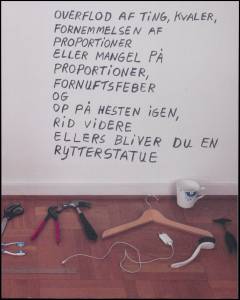 OVERFLOD AF TING, KVALER,
FORNEMMELSEN AF
PROPORTIONER
ELLER MANGEL PÅ
PROPORTIONER,
FORNUFTSFEBER
OG
OP PÅ HESTEN IGEN,
RID VIDERE
ELLERS BLIVER DU EN
RYTTERSTATUE